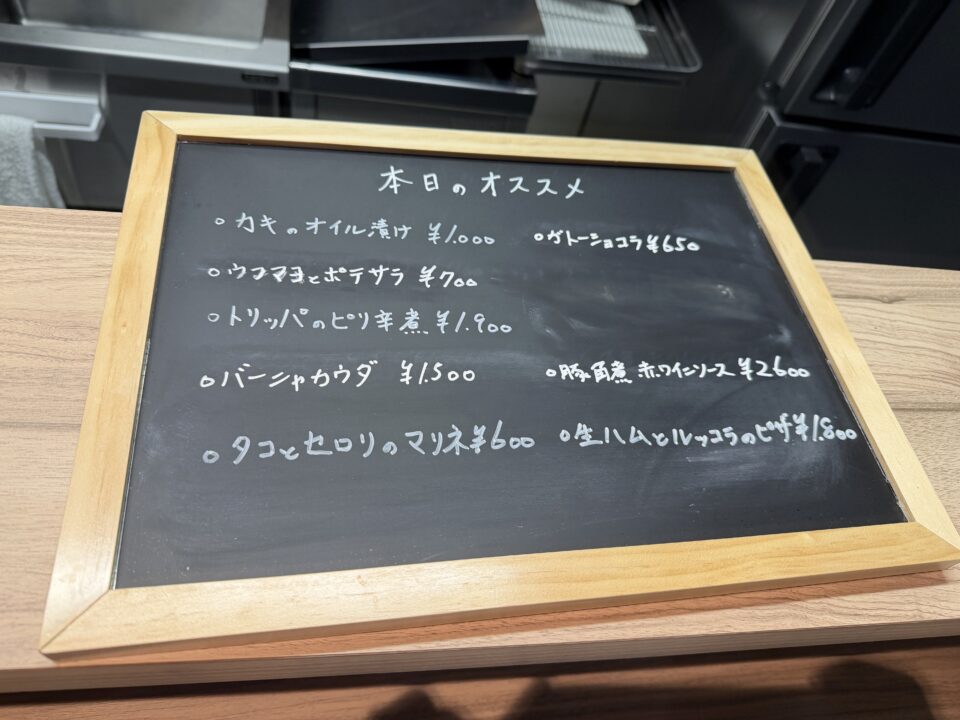 本日のオススメ
○カキのオイル漬け ¥1.000
○ウフマヨとポテサラ ¥700
○トリッパのピリ辛煮 ¥1.900
○バーシャカウダ ¥1.500
○タコとセロリのマリネ¥600
○ガトーショコラ¥650
○豚角煮 赤ワインソース¥2600
○生ハムとルッコラのピザ¥1.800